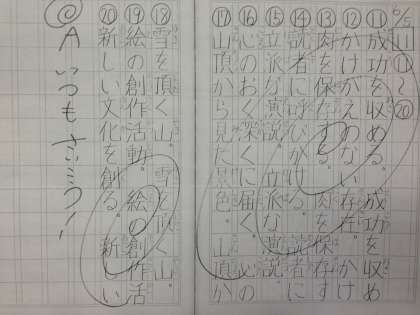 山⑪〜⑳
⑪成功を収める。成功を収め
⑫かけがえのない存在。かけ
⑬肉を保存する。肉を保存す
⑭読者に呼びかける。読者に
⑮立派な演説。立派な演説。
⑯心のおく深くに届く。心の
⑰山頂から見た景色。山頂か
⑱雪を頂く山。雪を頂く山。
⑲絵の創作活動。絵の創作活
⑳新しい文化を創る。新しい
A いつもさいこう!